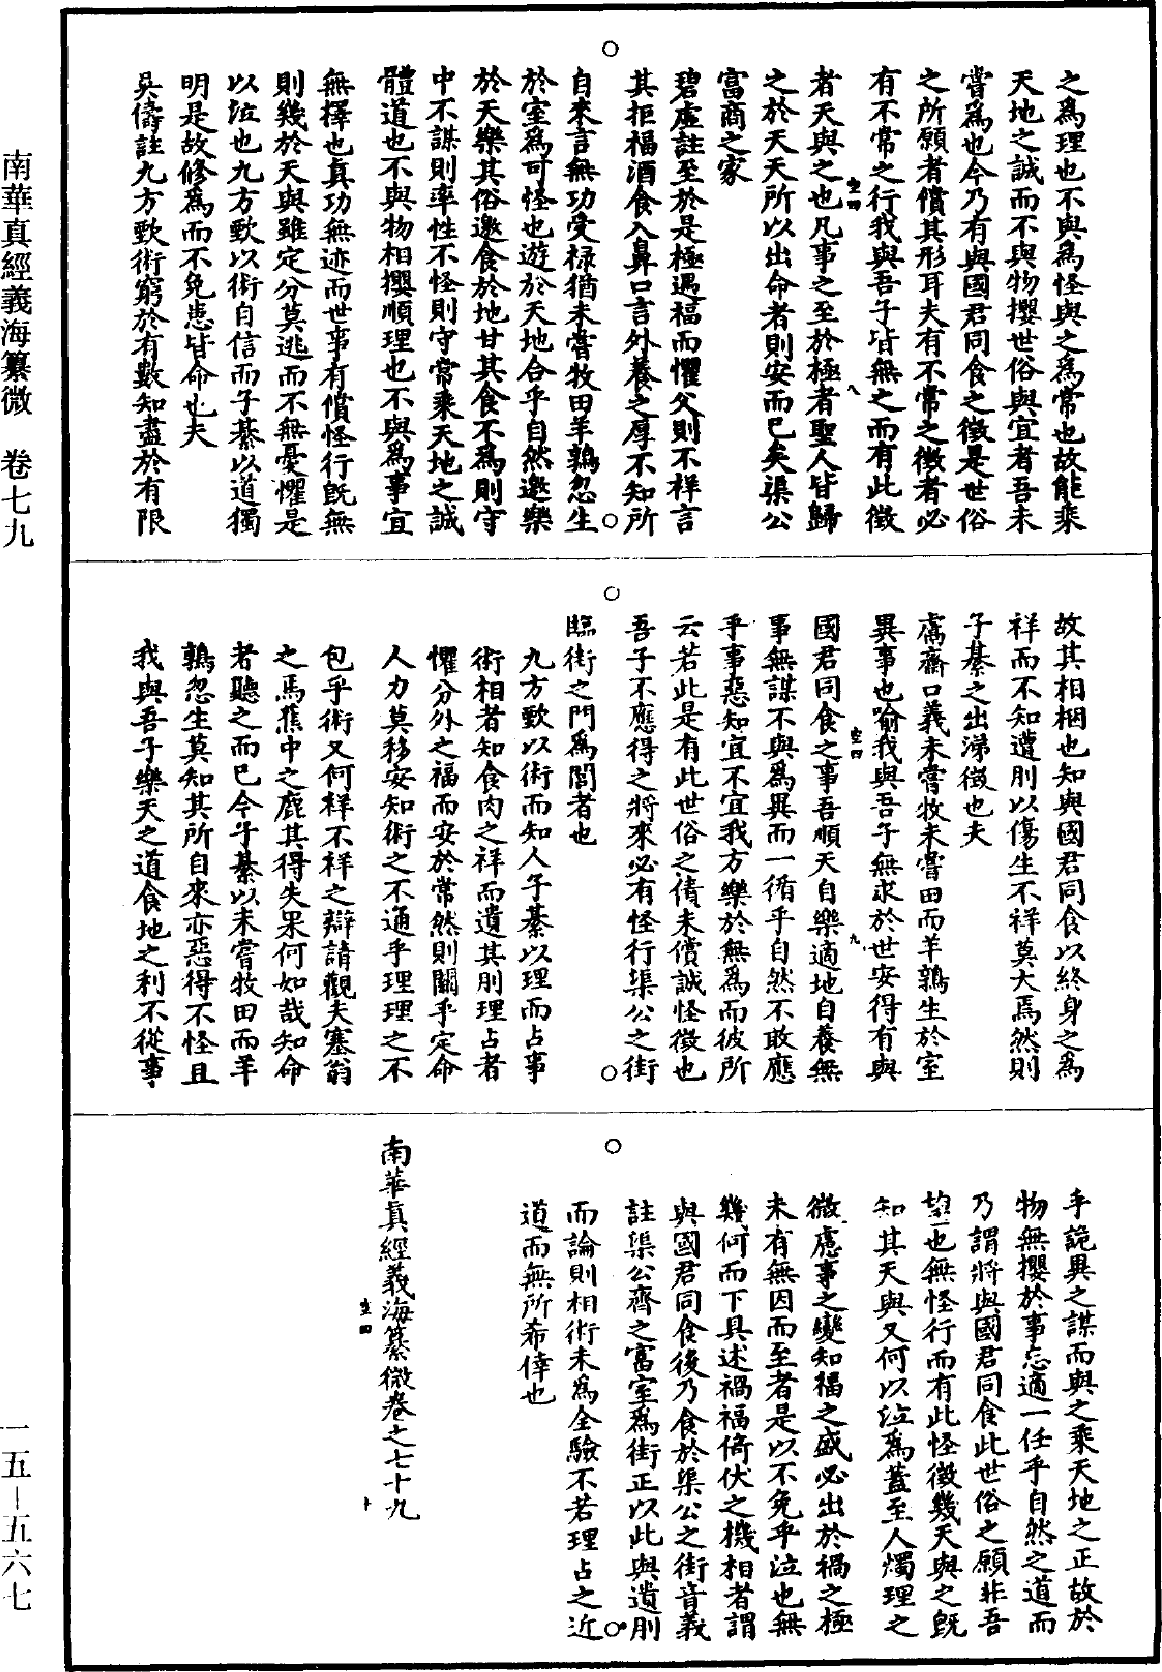 之爲理也不與爲怪與之爲常也故能乘
天地之誠而不與物攖世俗與宜者吾未
嘗爲也今乃有與國君同食之徵是世俗
之所願者償其形耳夫有不常之徵者必
有不常之行我與吾子皆無之而有此徵
者天與之也凡事之至於極者聖人皆歸
之於天天所以出命者則安而已矣渠公
富商之家
碧虛註至於是極遇福而懼父則不祥言
其拒福酒食入鼻口言外養之厚不知所
自來言無功受祿猶未嘗牧田羊鶉忽生
於室爲可怪也遊於天地合乎自然邀樂
於天樂其俗邀食於地甘其食不爲則守
中不謀則率性不怪則守常乘天地之誠
體道也不與物相攖順理也不與爲事宜
無擇也真功無迹而世事有償怪行旣無
則幾於天與雖定分莫逃而不無憂懼是
以泣也九方歅以術自信而子綦以道獨
明是故修爲而不免患皆命也夫
吳儔註九方歅術窮於有數知盡於有限
故其相梱也知與國君同食以終身之爲
祥而不知遭刖以傷生不祥莫大焉然則
子綦之出涕徵也夫
鬳齋口義未嘗牧未嘗田而羊鶉生於室
異事也喻我與吾子無求於世安得有與
國君同食之事吾順天自樂適地自養無
事無謀不與爲異而一循乎自然不敢應
乎事惡知宜不宜我方樂於無爲而彼所
云若此是有此世俗之債未償誠怪徵也
吾子不應得之將來必有怪行渠公之街
臨街之門爲閽者也
九方歅以術而知人子綦以理而占事
術相者知食肉之祥而遺其刖理占者
懼分外之福而安於常然則關乎定命
人力莫移安知術之不通乎理理之不
包乎術又何祥不祥之辯請觀夫塞翁
之馬蕉中之鹿其得失果何如哉知命
者聽之而已今子綦以未嘗牧田而羊
鶉忽生莫知其所自來亦惡得不怪且
我與吾子樂天之道食地之利不從事
乎詭異之謀而與之乘天地之正故於
物無攖於事忘適一任乎自然之道而
乃謂將與國君同食此世俗之願非吾
望也無怪行而有此怪徵幾天與之旣
知其天與又何以泣爲蓋至人燭理之
微慮事之變知福之盛必出於禍之極
未有無因而至者是以不免乎泣也無
幾何而下具述禍福倚伏之機相者謂
與國君同食後乃食於渠公之街音義
註渠公齊之富室爲街正以此與遺刖
而論則相術未爲全驗不若理占之近
道而無所希倖也
南華真經義海纂微卷之七十九
空四
八
空四
九
空四
十
南華真經義海纂微 卷七九
一五—五六七